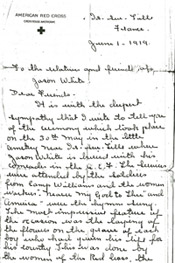 AMERICAN RED CROSS
Is-sur-Tille
France.
June 1, 1919.
To the relatives and friends of
Jason White.
Dear Friends:
It is with the deepest
sympathy that I write to tell you
of the ceremony which took place
on the 30th May in the little
cemetery near Is-sur-Tille where
Jason White is buried with his
comrades in the A.E.F. The services
were attended by the soldiers
from Camp Williams and the women
"Nearer My God to Thee" and
"America" were the hymns sung.
The most impressive feature of
the occasion was the laying of
the flowers on the grave of each
boy who had given his life for
his country. This was done by
the women of the Red Cross, the